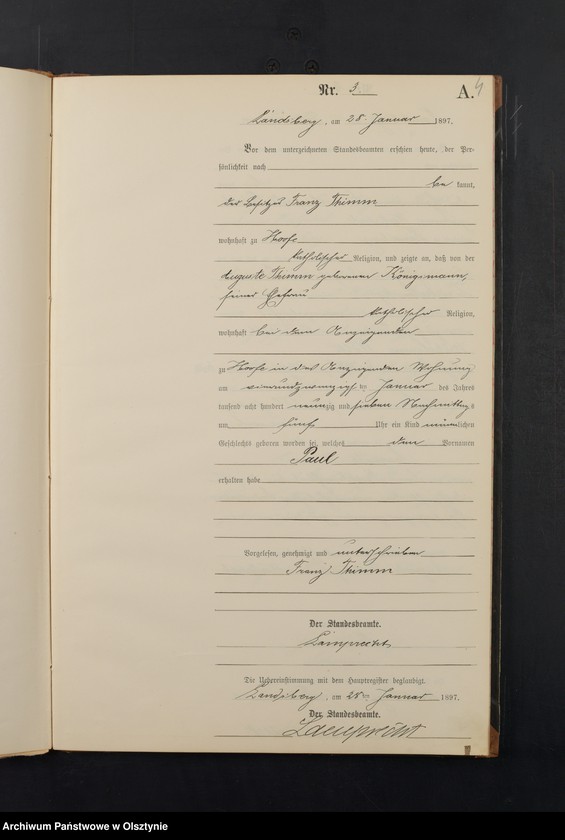 Nr. 3.
A. 4
Landsberg, am 28. Januar 1897.
Vor dem unterzeichneten Standesbeamten erschien heute, der Per-
sönlichkeit nach
be kannt,
der Besitzer Franz Thimm
wohnhaft zu
katholischer Religion, und zeigte an, daß von der
Auguste Thimm geborenen Königsmann,
seiner Ehefrau
katholischer Religion,
wohnhaft bei dem Anzeigenden
zu in des Anzeigenden Wohnung
am einundzwanzigsten Januar des Jahres
tausend acht hundert neunzig und sieben Nachmittags
um fünf Uhr ein Kind männlichen
Geschlechts geboren worden sei, welches den Vornamen
Paul
erhalten habe
Vorgelesen, genehmigt und unterschrieben
Franz Thimm
Der Standesbeamte.
Lamprecht
Die Uebereinstimmung mit dem Hauptregister beglaubigt.
Landsberg, am 28ten Januar 1897.
Der Standesbeamte.
Lamprecht
Archiwum Państwowe w Olsztynie